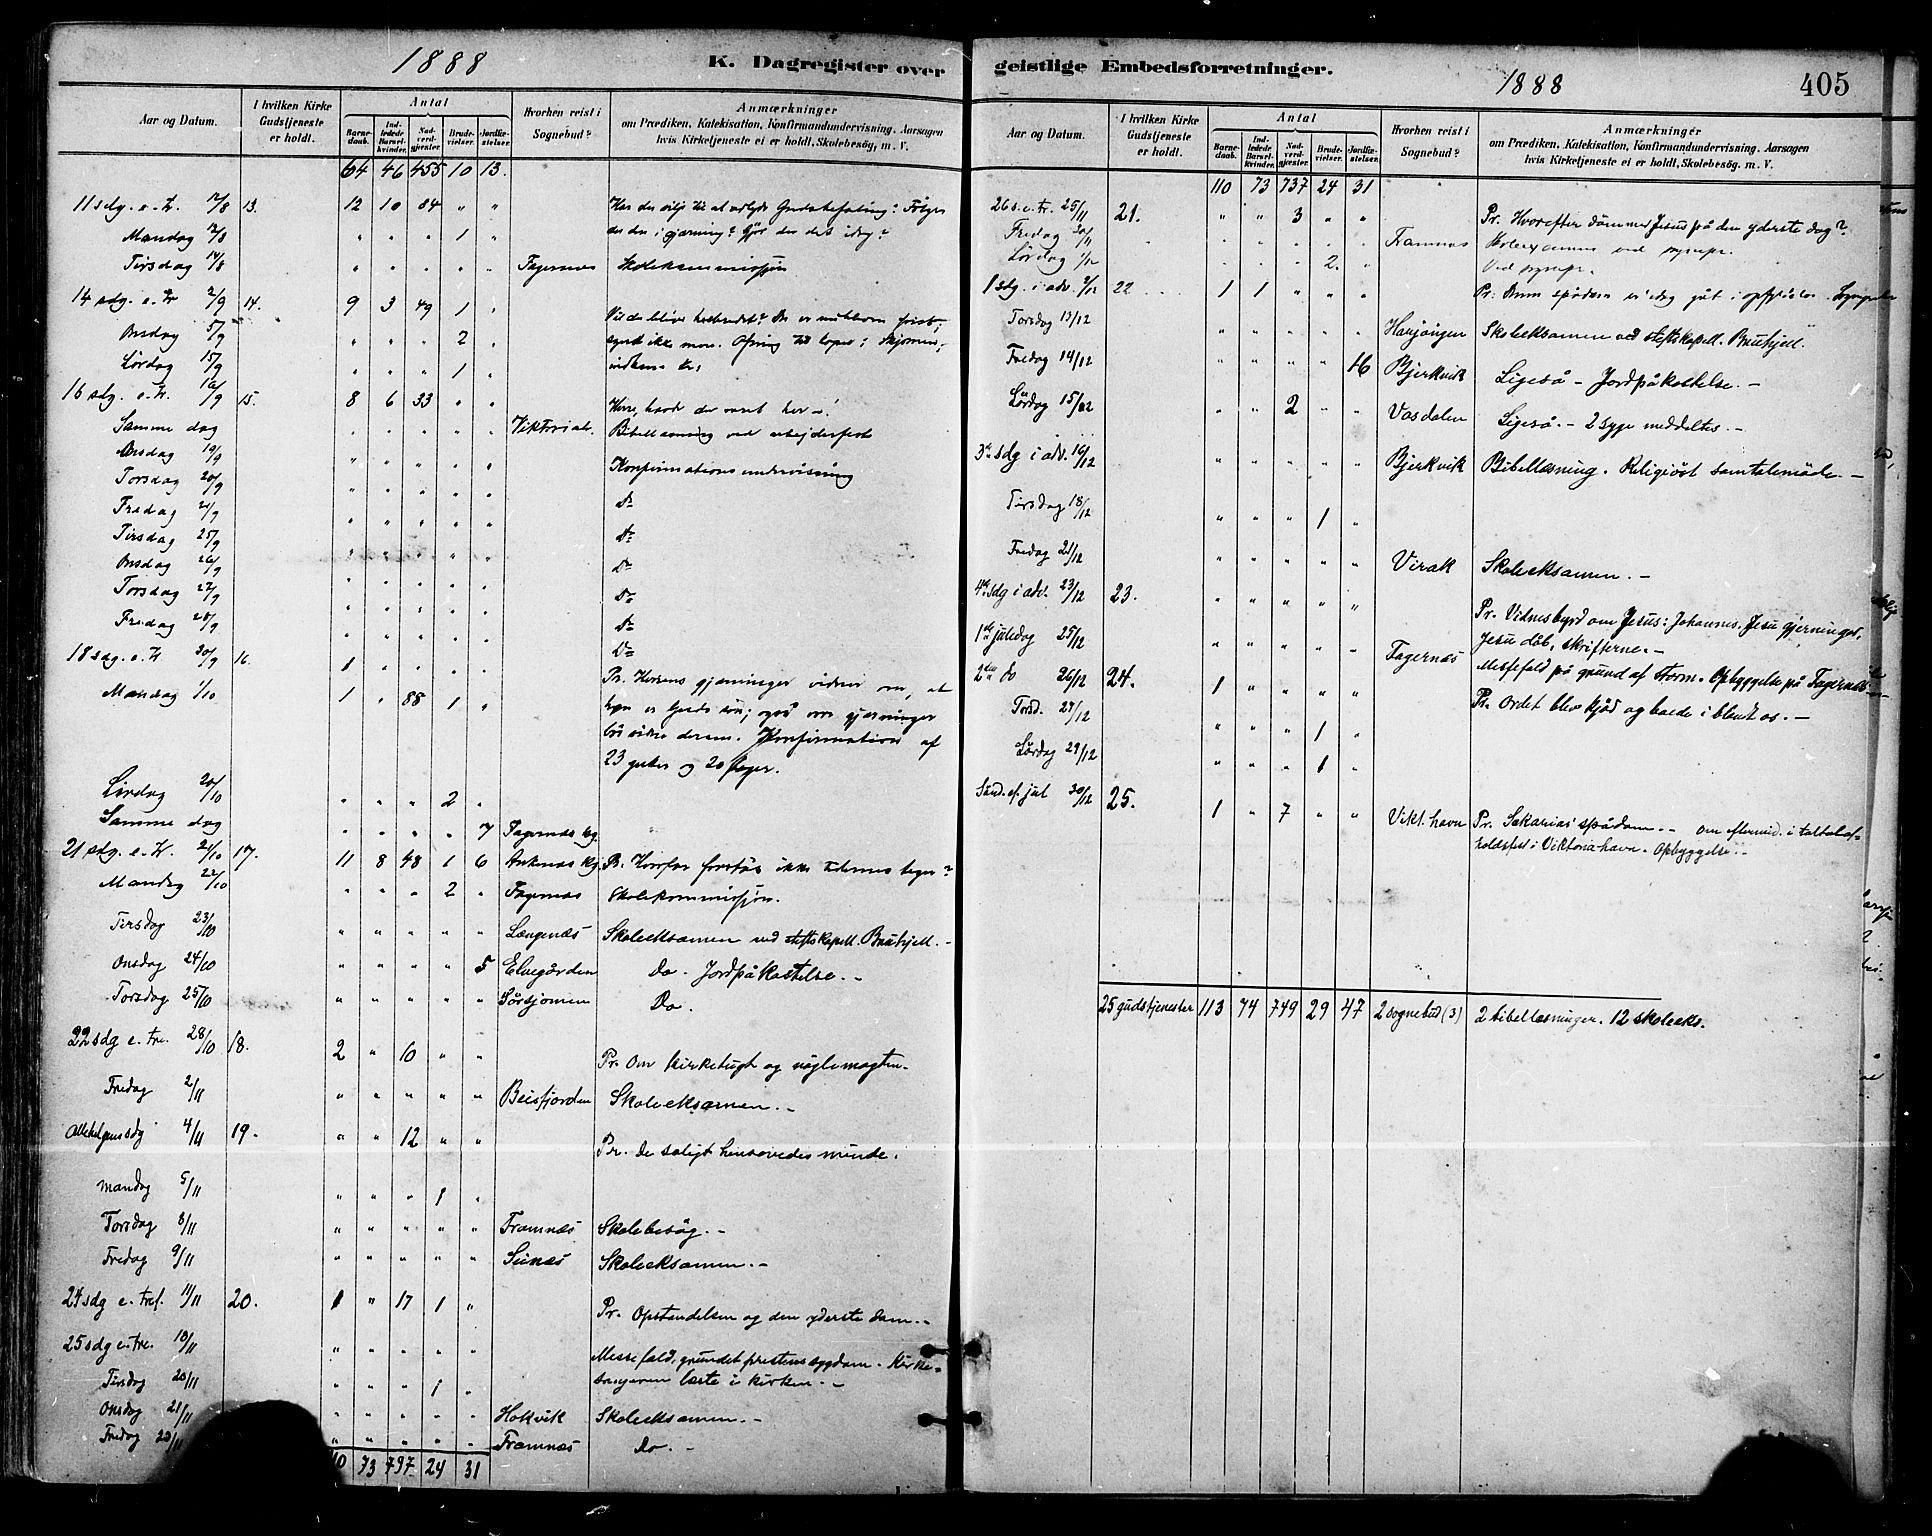 1888
K. Dagregister over
Aar og Datum. I hvilken Kirke Gudstjeneste er holdt. Antal Barnedaab. Indledede Barselkvinder. Nadverdgjester. Brudevielser. Jordfæstelser. Hvorhen reist i Sognebud? Anmærkninger om Prædiken, Katekisation, Konfirmandundervisning, Aarsagen hvis Kirketjeneste ei er holdt, Skolebesøg, m. V.
64 46 455 10 13.
11 sdg. e. tr. 12/8 13. 12 10 84 " "
Mandag /8 " " " 1 "
Tirsdag 14/8 " " " " " Fagernæs Skolekommissjon
14 sdg. e. tr 2/9 14. 9 3 49 1 "
Onsdag 5/9 " " " 2 "
Lørdag 15/9 " " " 1 "
16 sdg. e. tr. 16/9 15. 8 6 33 " "
Samme dag " " " " " Bibellæsning ved arbejderfest
Onsdag 19/9 " " " " " Konfirmationsundervisning
Torsdag 20/9 " " " " " Do
Fredag 21/9 " " " " " Do
Tirsdag 25/9 " " " " " Do
Onsdag 26/9 " " " " " Do
Torsdag 27/9 " " " " " Do
Fredag 28/9 " " " " " Do
18 sdg. e. tr. 30/9 16. 1 " " " " Pr. Herrens gjerninger vidner om, at
Mandag 1/10 1 " 88 1 " han er Guds søn; også vore gjerninger
bør vidne derom. Konfirmation af
23 gutter og 20 piger.
Lørdag 20/10 " " " 2 "
Samme dag " " " " 7 Fagernæs kg.
21 sdg. e. tr. 21/10 17. 11 8 48 1 6 Ankenæs kg. Pr. Hvorfor forstås ikke tidernes tegn?
Mandag 22/10 " " " 2 " Fagernæs Skolekommissjon.
Tirsdag 23/10 " " " " " Længenæs Skoleeksamen ved stiftskapell. Brufjell. -
Onsdag 24/10 " " " " 5 Elvegården Do. Jordpåkastelse. -
Torsdag 25/10 " " " " " Sørsjomen Do.
22 sdg e. tre. 28/10 18. 2 " 10 " " Pr. Om kirketugt og nøglemagten.
Fredag 2/11 " " " " " Beisfjorden Skoleeksamen. -
Allehelgensdg 4/11 19. " " 12 " " Pr. De saligt hensovedes minde.
Mandag 5/11 " " " 1 "
Torsdag 8/11 " " " " " Framnæs Skolebesøg. -
Fredag 9/11 " " " " " Seinæs Skoleeksamen. -
24 sdg e. tref. 11/11 20. 1 " 17 1 " Pr. Opstandelsen og den yderste dom. -
25 sdg e. tre. 18/11 " " " " " Messefald, grundet prestens sygdom. Kirke-
Tirsdag 20/11 " " " 1 " sangeren læste i kirken. -
Onsdag 21/11 " " " " " Hokvik Skoleeksamen. -
Fredag 23/11 " " " " " Framnæs Do. -
110 73 737 24 31
geistlige Embedsforretninger.
1888
405
Aar og Datum. I hvilken Kirke Gudstjeneste er holdt. Antal Barnedaab. Indledede Barselkvinder. Nadverdgjester. Brudevielser. Jordfæstelser. Hvorhen reist i Sognebud? Anmærkninger om Prædiken, Katekisation, Konfirmandundervisning. Aarsagen hvis Kirketjeneste ei er holdt, Skolebesøg. m. V.
110 73 737 24 31
26 s. e. tr. 25/11 21. " " 3 " " Pr. Hvorefter dømmer Jesus på den yderste dag?
Fredag 30/11 " " " " " Framnæs Skoleexamen ved sognepr.
Lørdag 1/12 " " " 2. " Ved sognepr.
1 sdg. i adv. 2/12 22 1 1 " " "
Torsdag 13/12 " " " " " Herjangen Skoleeksamen ved stiftskapell. Brufjell.
Fredag 14/12 " " " " 16 Bjerkvik Ligeså - Jordpåkastelse. -
Lørdag 15/12 " " 2 " " Vasdalen Ligeså. - 2 syge meddeltes. -
3de sdg i adv. 16/12 " " " " " Bjerkvik Bibellæsning. Religiøst samtalemøde. -
Tirsdag 18/12 " " " 1 "
Fredag 21/12 " " " " " Virak Skoleeksamen. -
4de sdg i adv. 23/12 23. " " " " " Pr. Vidnesbyrd om Jesus: Johannes, Jesu gjerninger,
Jesu dåb, skrifterne. -
1ste juledag 25/12 " " " " " Fagernæs Messefald på grund af storm. Opbyggelse på Fagernæs.
2den do 26/12 24. 1 " " " " Pr. Ordet blev kjød og boede iblandt os. -
Torsd. 27/12 " " " 1 "
Lørdag 29/12 " " " 1 "
Sønd. ef. jul 30/12 25. 1 " 7 " " Vikt. havn Pr. Sakarias' spådom. - Om eftermid. i totalaf-
holdsfest i Viktoriahavn. Opbyggelse. -
25 gudstjenester 113 74 749 29 47 2 sognebud (3) 2 bibellæsninger. 12 skoleeks.